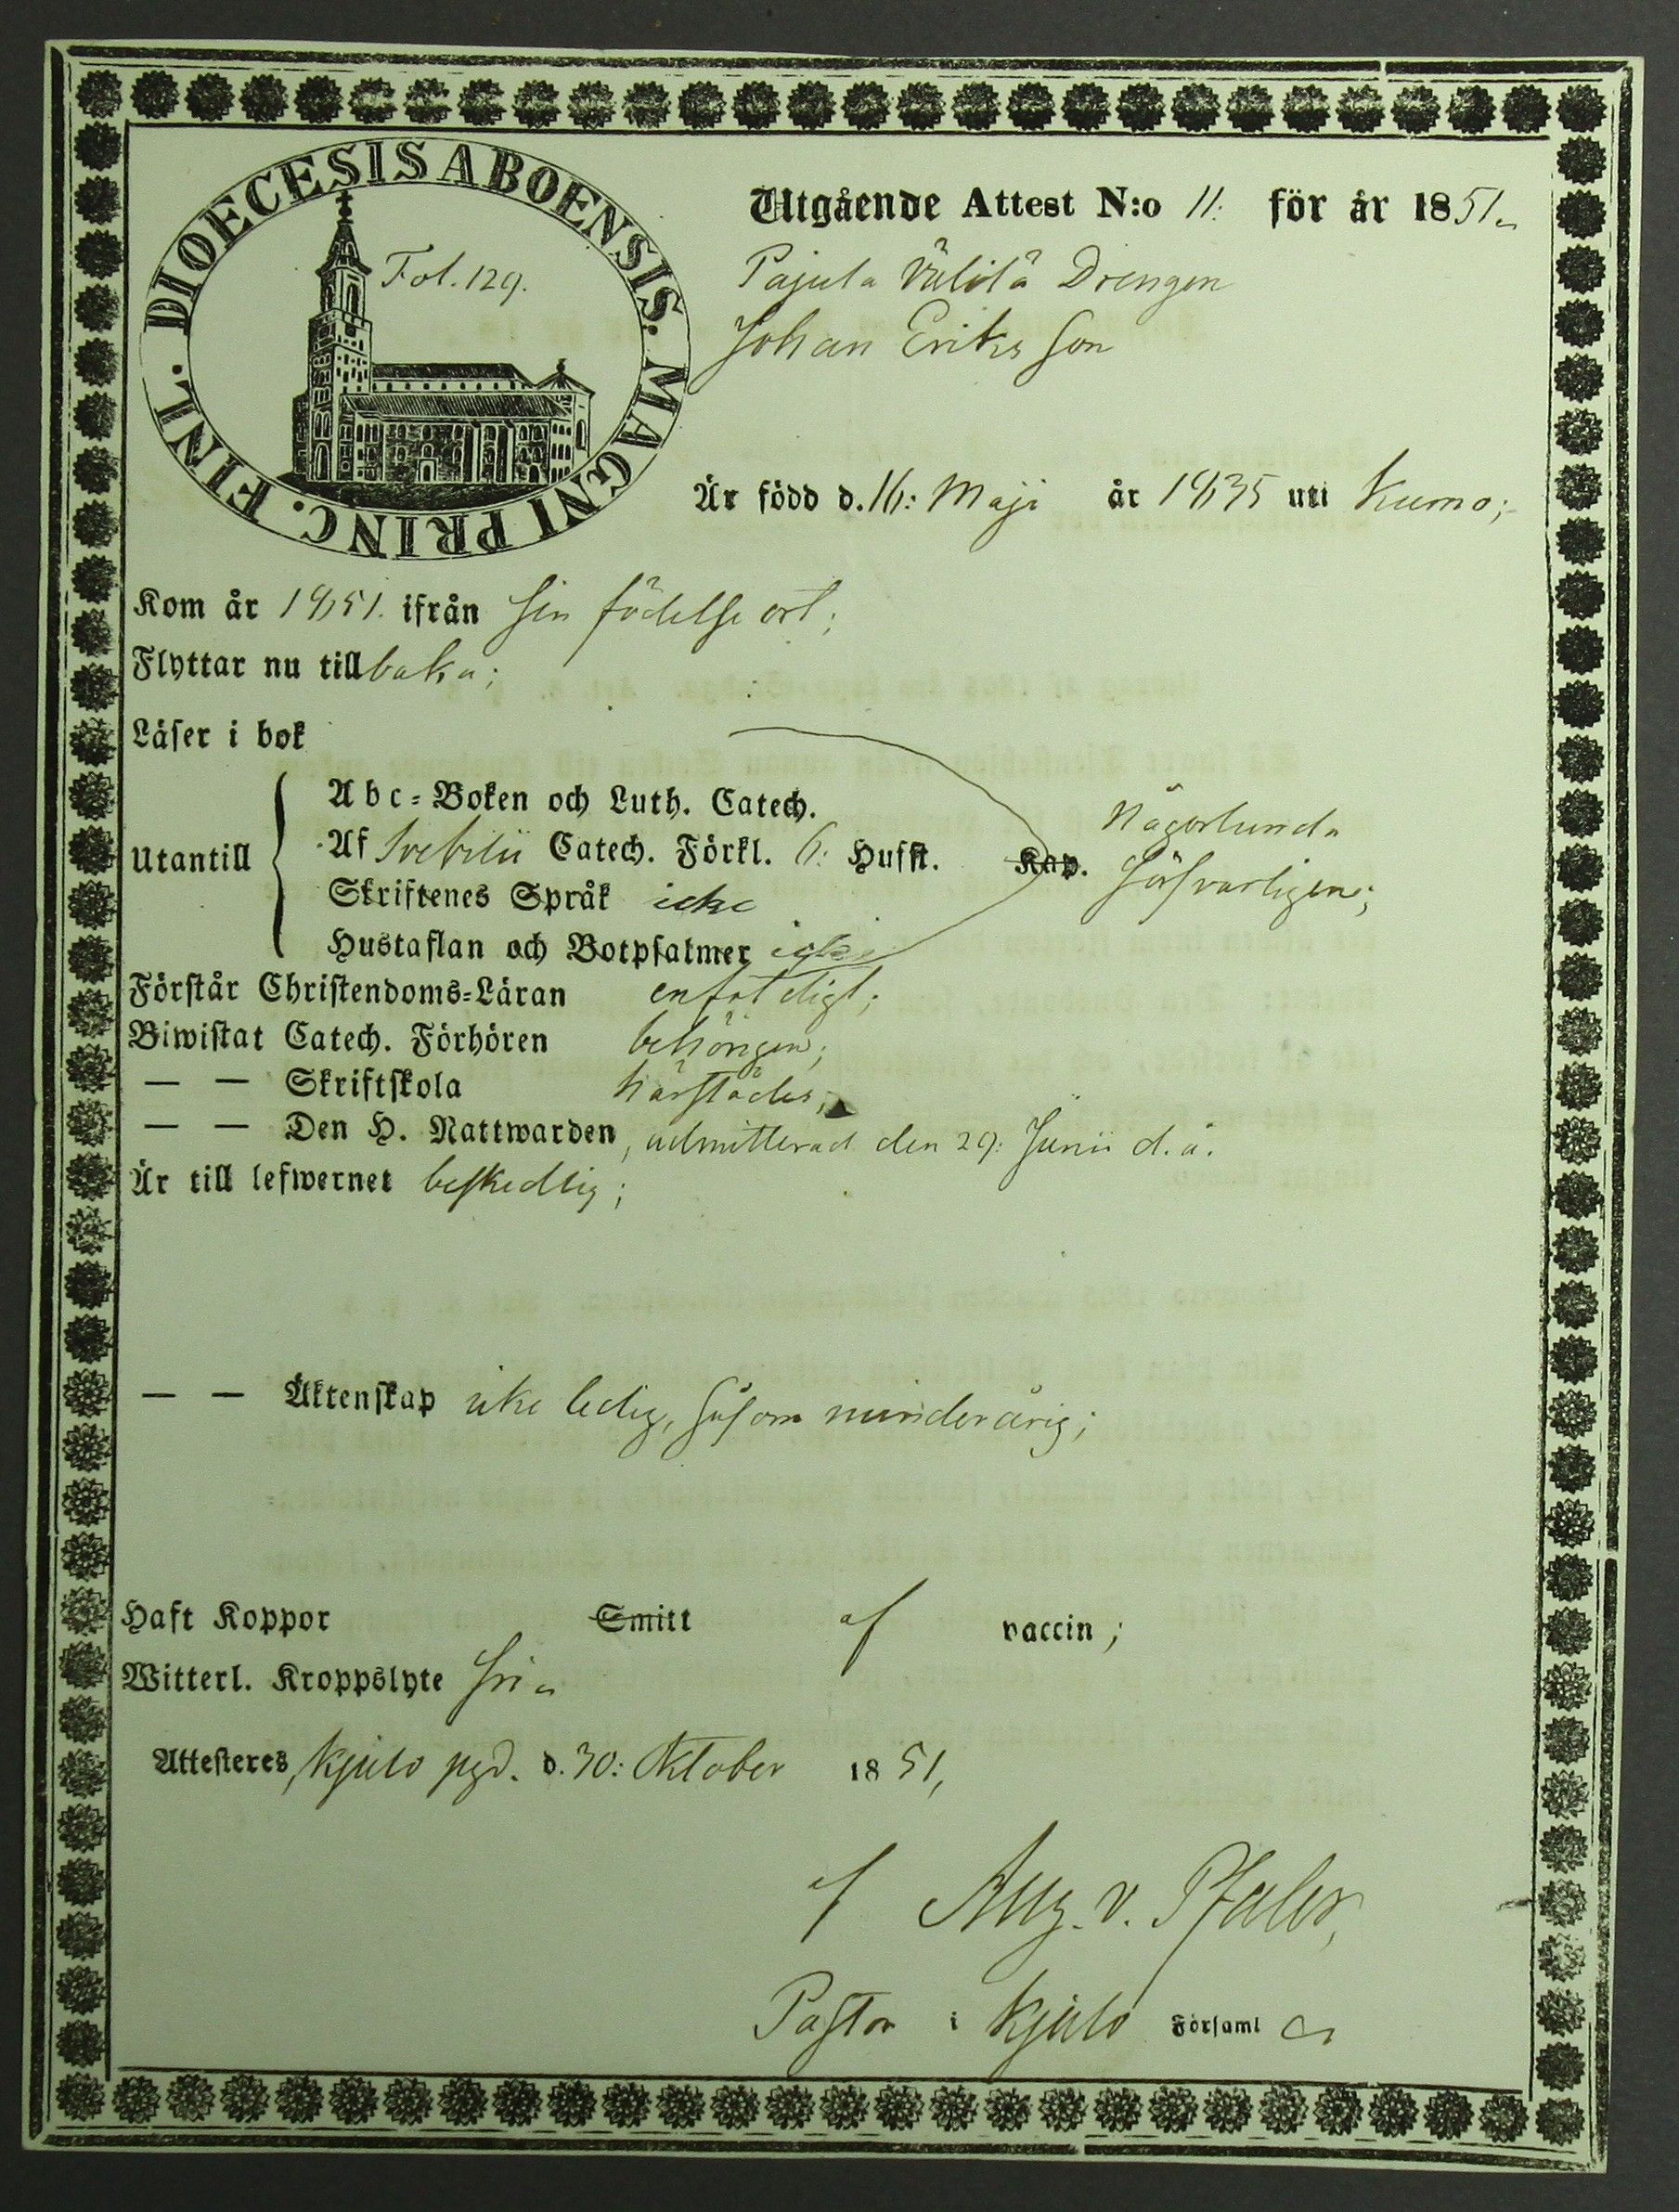 DIOECESIS ABOENSIS. MAGNI PRINC. FINL.
Fol. 129.
Utgående Attest N:o 11: för år 1851.
Pajula Välilä Drengen
Johan Eriksson
Är född d. 16: Maji år 1835 uti Kumo;
Kom år 1851. ifrån sin födelse ort;
Flyttar nu tillbaka;
Läser i bok
Abc-Boken och Luth. Catech.
Utantill Af Svebilii Catech. Förkl. 6: Husst. Kap.
Någorlunda
försvarligen;
Skriftenes Språk icke
Hustaflan och Botpsalmer icke
Förstår Christendoms-Läran enfaldigt;
Biwistat Catech. Förhören behörigen;
— — Skriftskola härstädes;
— — Den H. Nattwarden, admitterad den 29: Junii d. å.
Är till lefwernet beskedlig;
— — Äktenskap icke ledig, såsom minderårig;
Haft Koppor Smitt af vaccin;
Witterl. Kroppslyte fri
Attesteres, Kjulo pgd. d. 30: Oktober 1851,
af Aug. v. Pfaler,
Pastor i Kjulo Församl